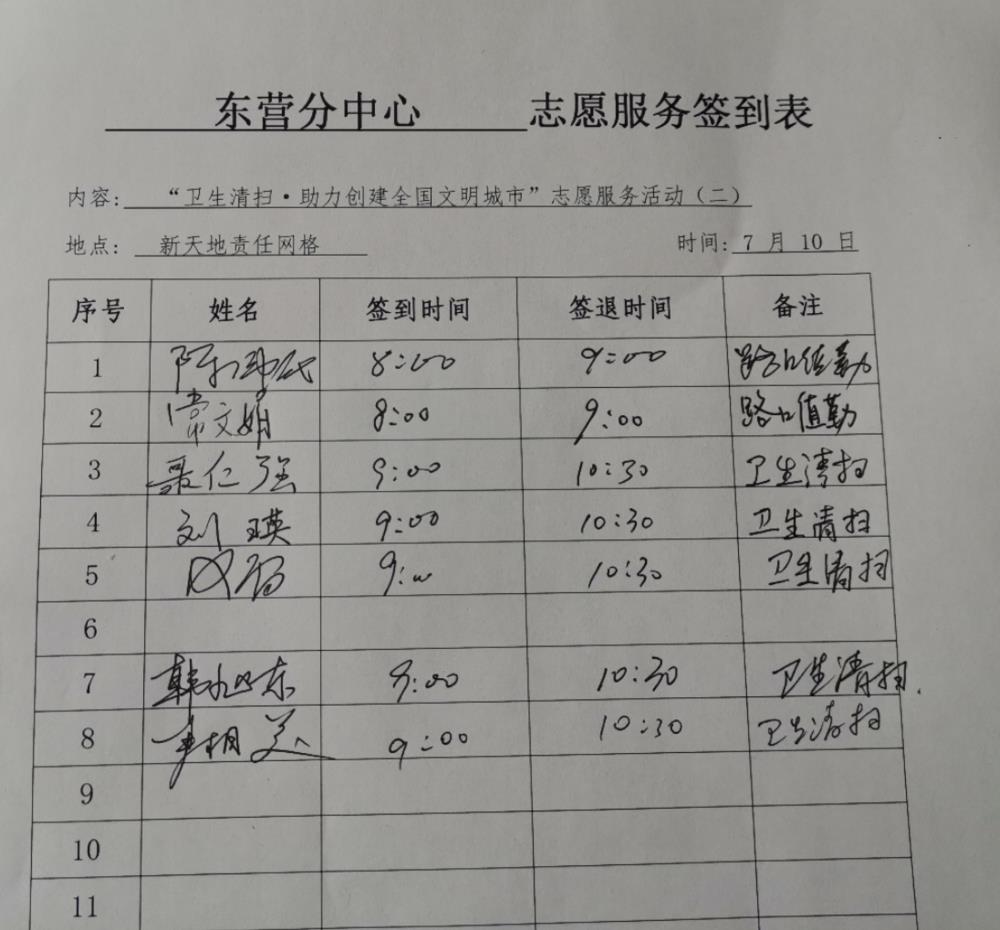 东营分中心 志愿服务签到表
内容: “卫生清扫·助力创建全国文明城市”志愿服务活动(二)
地点: 新天地责任网格 时间: 7 月 10 日
序号 姓名 签到时间 签退时间 备注
1 8:00 9:00 路口值勤
2 常文娟 8:00 9:00 路口值勤
3 聂仁强 9:00 10:30 卫生清扫
4 刘瑛 9:00 10:30 卫生清扫
5 9:00 10:30 卫生清扫
6
7 韩 东 9:00 10:30 卫生清扫
8 相美 9:00 10:30 卫生清扫
9
10
11